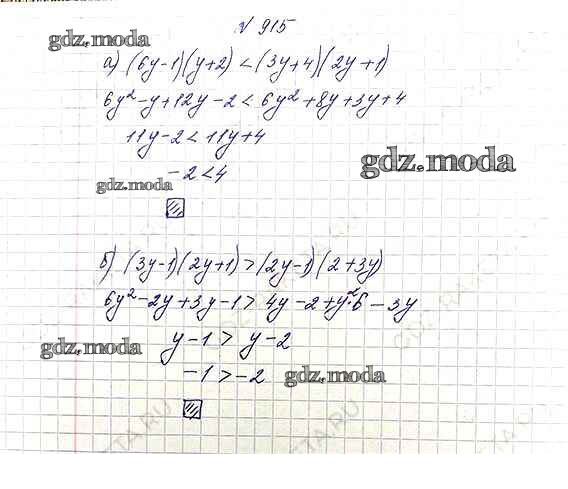 № 915
gdz.moda
а) (6y-1)(y+2) < (3y+4)(2y+1)
6y²-y+12y-2 < 6y²+8y+3y+4
11y-2 < 11y+4
gdz.moda
-2 < 4
gdz.moda
б) (3y-1)(2y+1) > (2y-1)(2+3y)
6y²-2y+3y-1 > 4y-2+y²·6-3y
gdz.moda
y-1 > y-2
-1 > -2
gdz.moda